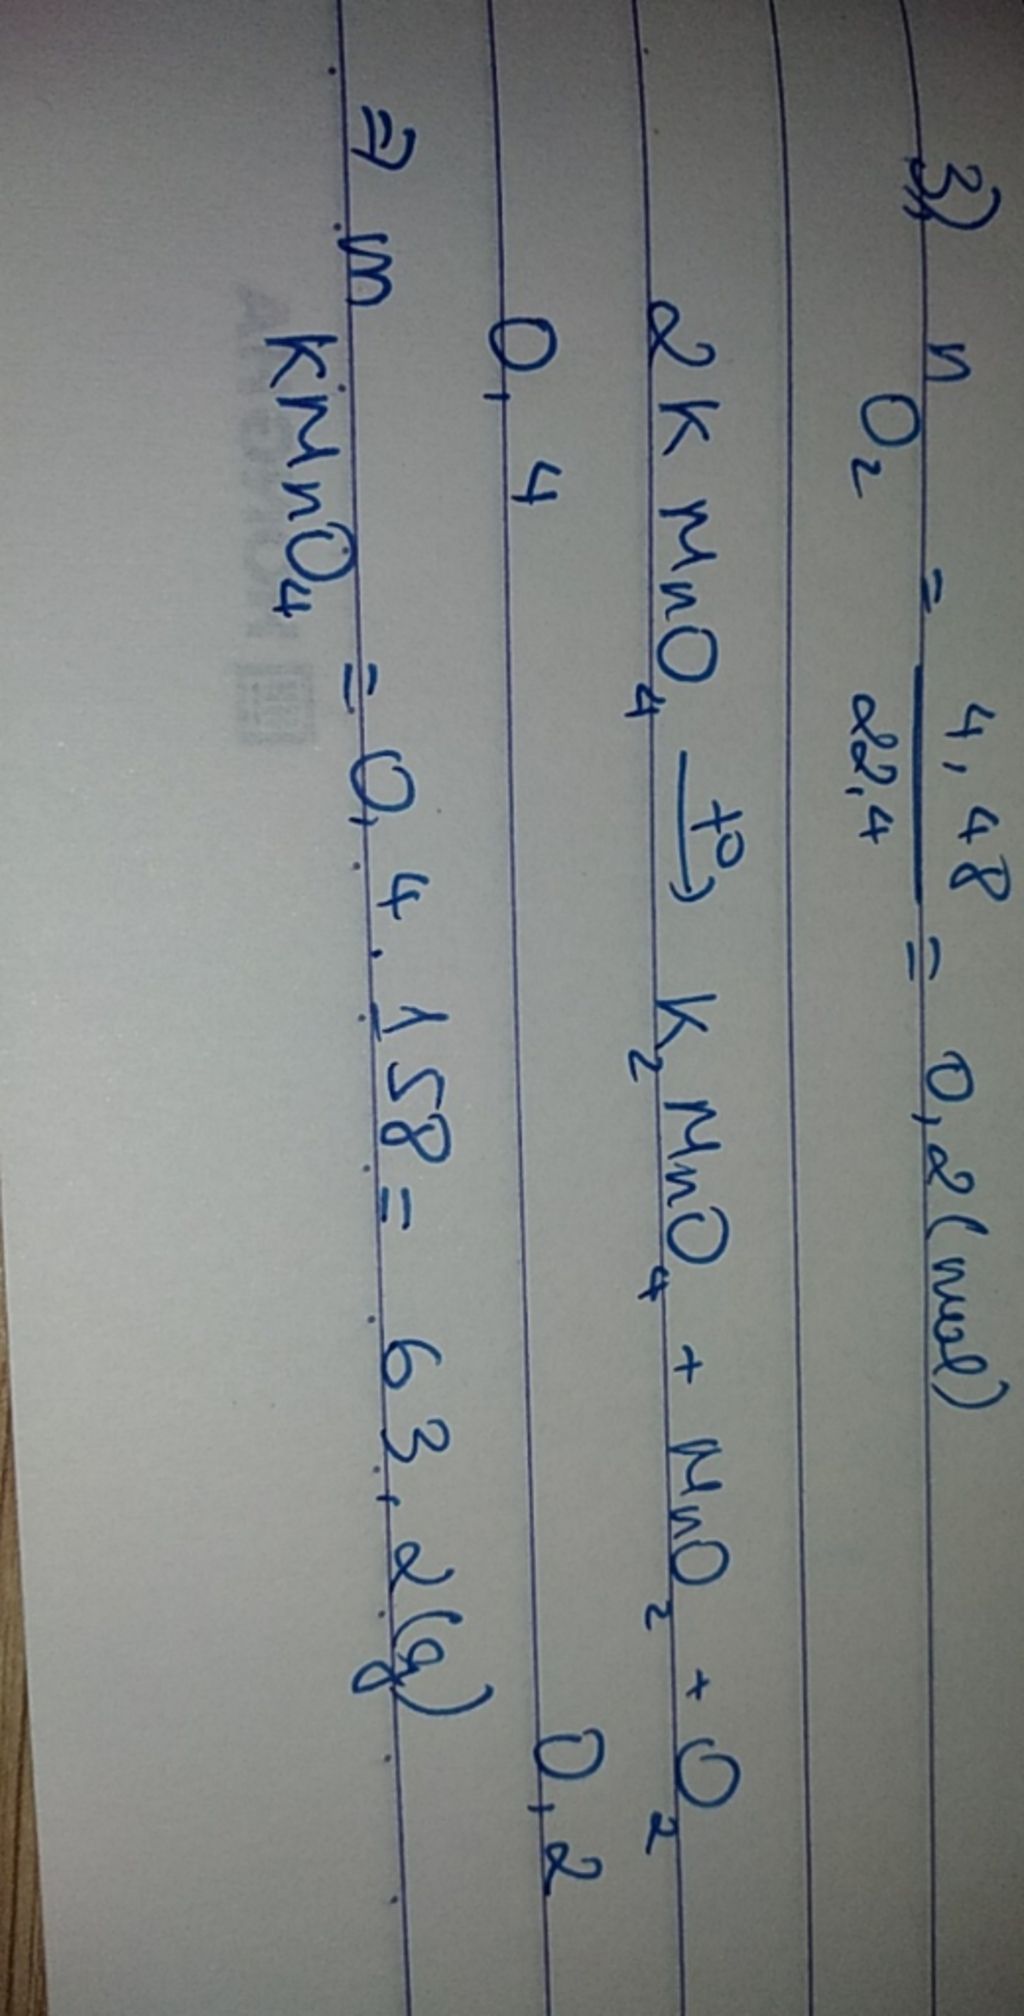 3) n O2 = 4,48 / 22,4 = 0,2 (mol)
2KMnO4 —t°→ K2MnO4 + MnO2 + O2
0,4 0,2
⇒ m KMnO4 = 0,4 . 158 = 63,2 (g)